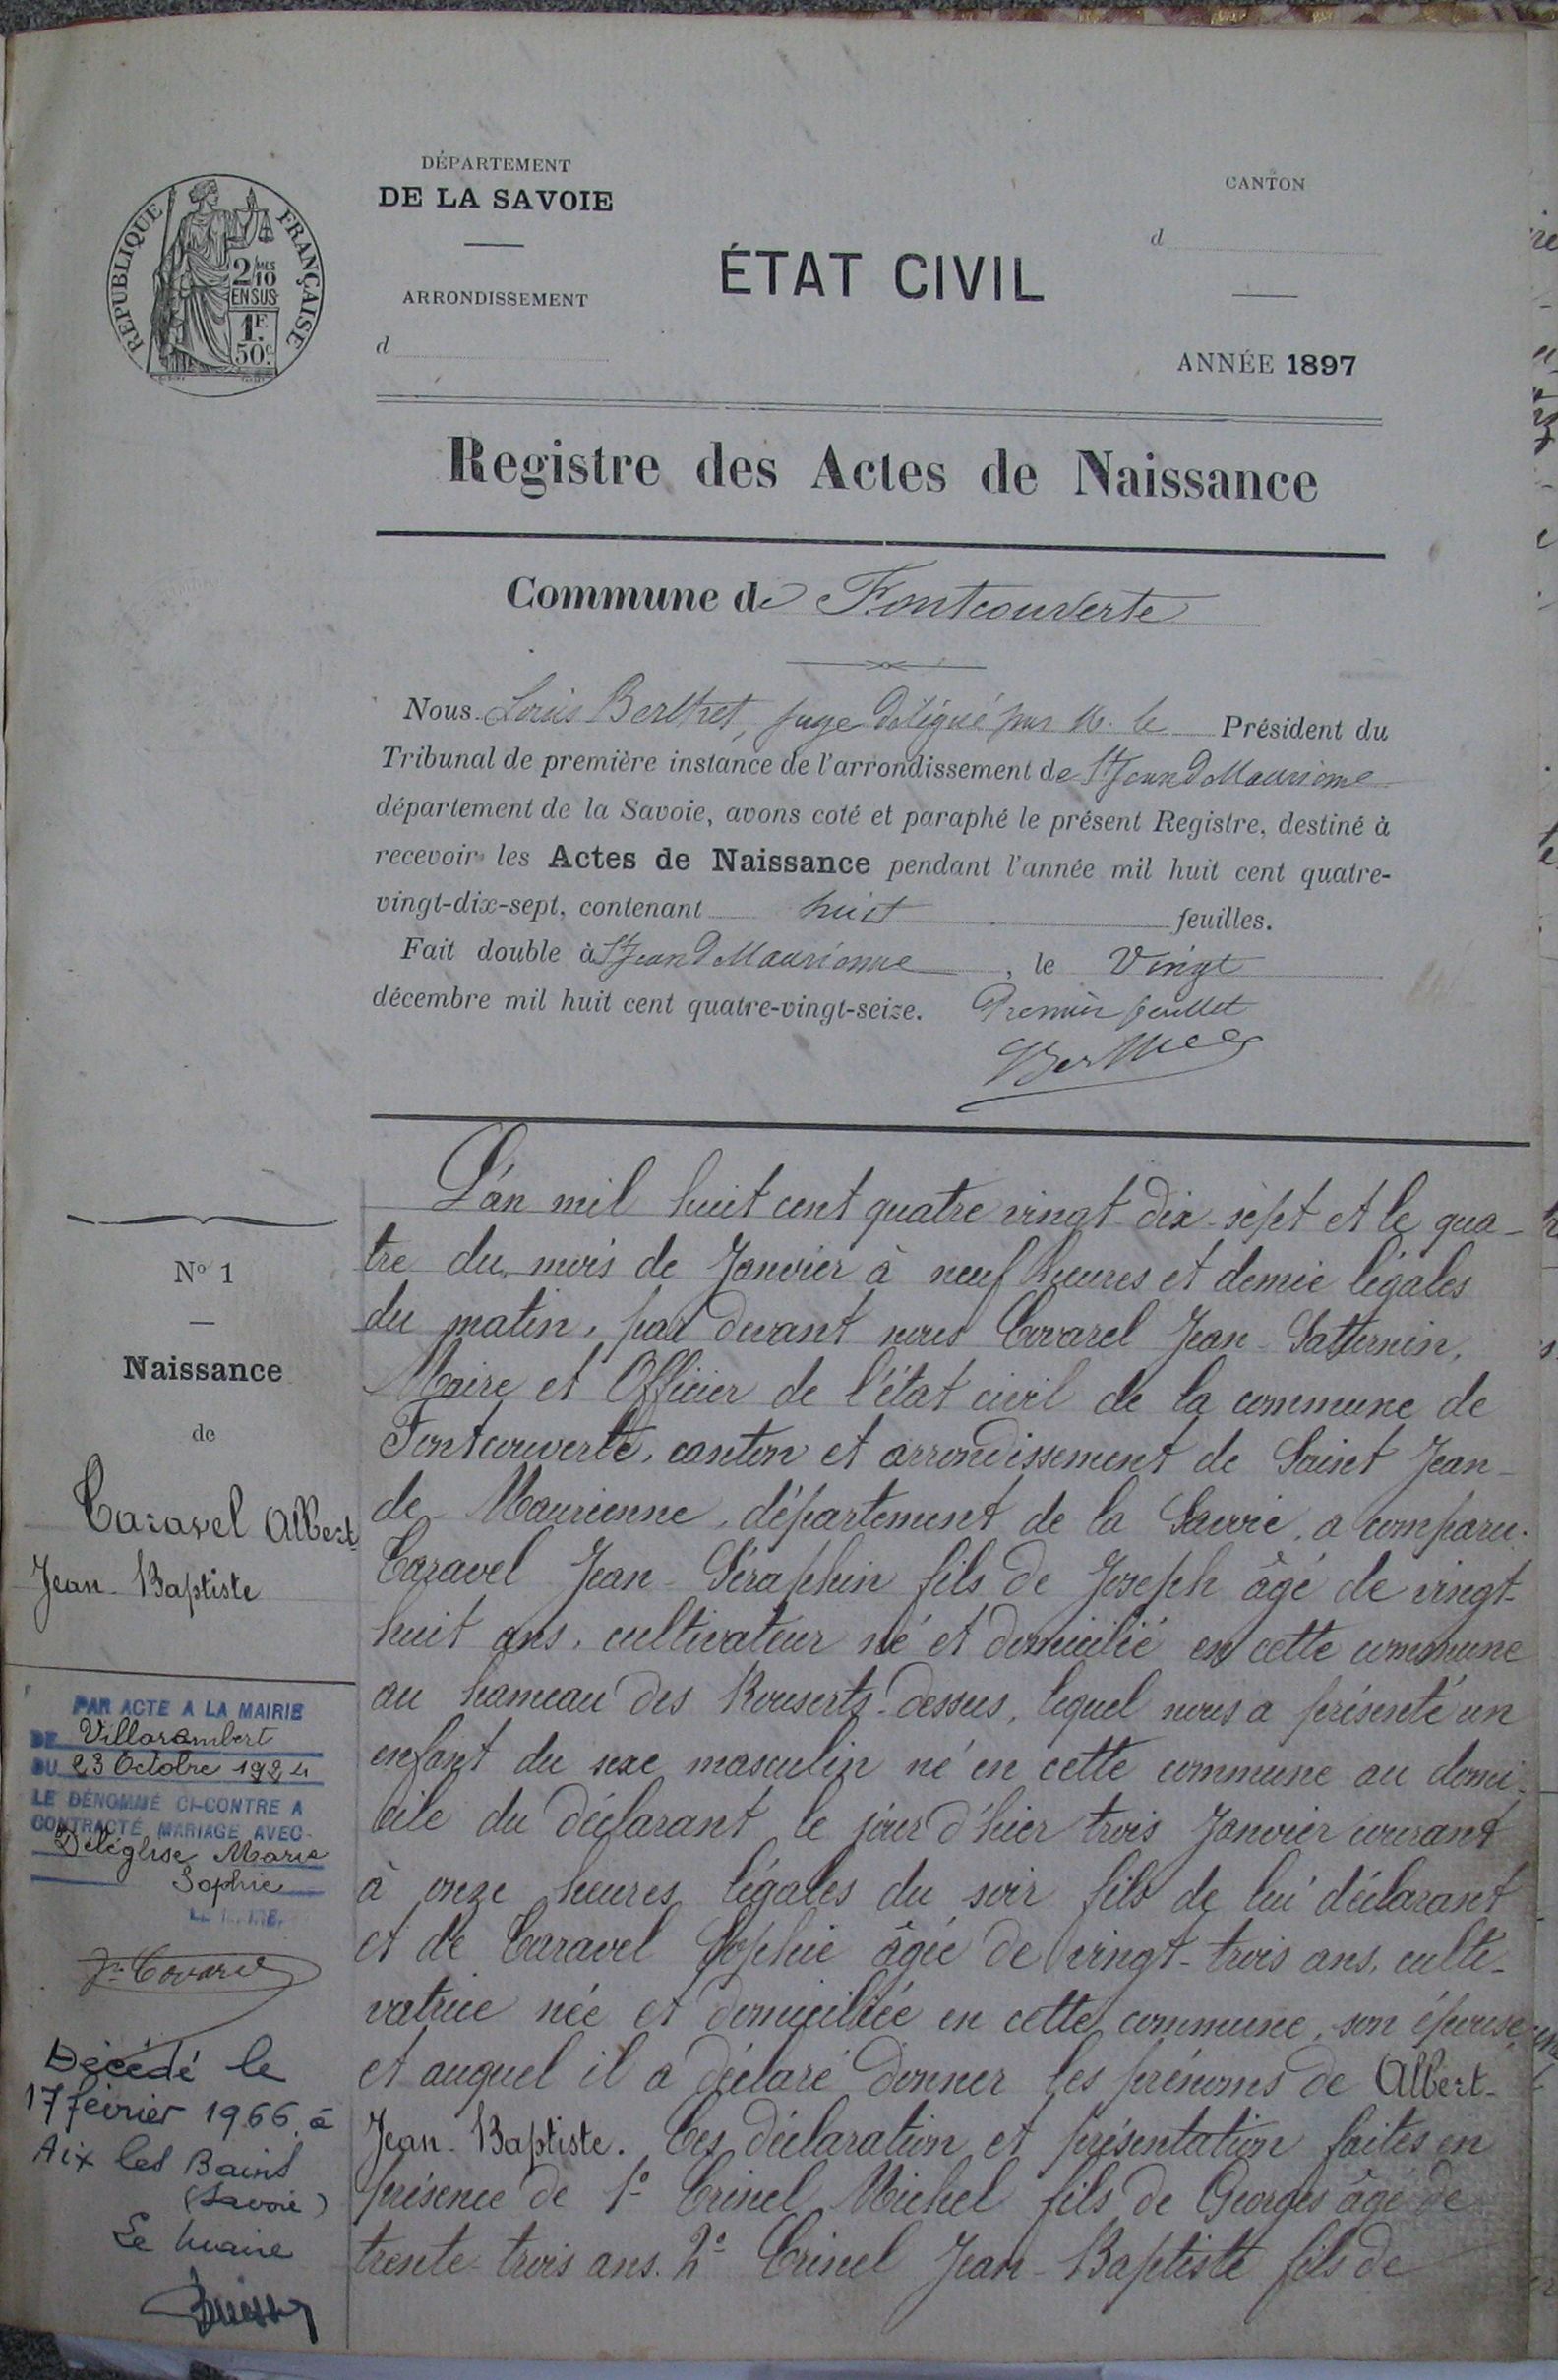 RÉPUBLIQUE FRANÇAISE
2/10 MES
EN SUS
1F.
50c.
DÉPARTEMENT
DE LA SAVOIE
ARRONDISSEMENT
d
ÉTAT CIVIL
CANTON
d
ANNÉE 1897
Registre des Actes de Naissance
Commune de Fontcouverte
Nous Louis Berthet, juge délégué par M. le Président du
Tribunal de première instance de l'arrondissement de St Jean d Maurienne
département de la Savoie, avons coté et paraphé le présent Registre, destiné à
recevoir les Actes de Naissance pendant l'année mil huit cent quatre-
vingt-dix-sept, contenant huit feuilles.
Fait double à St Jean d Maurienne, le Vingt
décembre mil huit cent quatre-vingt-seize. Premier feuillet
Berthet
No 1
Naissance
de
Caravel Albert-
Jean-Baptiste
PAR ACTE A LA MAIRIE
DE Villarembert
DU 23 Octobre 1924
LE DÉNOMMÉ CI-CONTRE A
CONTRACTÉ MARIAGE AVEC
Déléglise Marie
Sophie
LE MAIRE,
Jn Covarel
Décédé le
17 février 1966 à
Aix les Bains
(Savoie)
Le Maire
L'an mil huit cent quatre vingt-dix-sept et le qua-
tre du mois de Janvier à neuf heures et demie légales
du matin, par devant nous Covarel Jean-Satturnin,
Maire et Officier de l'état civil de la commune de
Fontcouverte, canton et arrondissement de Saint Jean-
de-Maurienne, département de la Savoie, a comparu.
Caravel Jean-Séraphin fils de Joseph âgé de vingt-
huit ans, cultivateur né et domicilié en cette commune
au hameau des Rousserts-dessus, lequel nous a présenté un
enfant du sexe masculin né en cette commune au domi-
cile du déclarant le jour d'hier trois Janvier courant
à onze heures légales du soir fils de lui déclarant
et de Caravel Sophie âgée de vingt-trois ans, culti-
vatrice née et domiciliée en cette commune, son épouse,
et auquel il a déclaré donner les prénoms de Albert-
Jean-Baptiste. Ces déclaration et présentation faites en
présence de 1º Crinel Michel fils de Georges âgé de
trente-trois ans. 2º Crinel Jean-Baptiste fils de